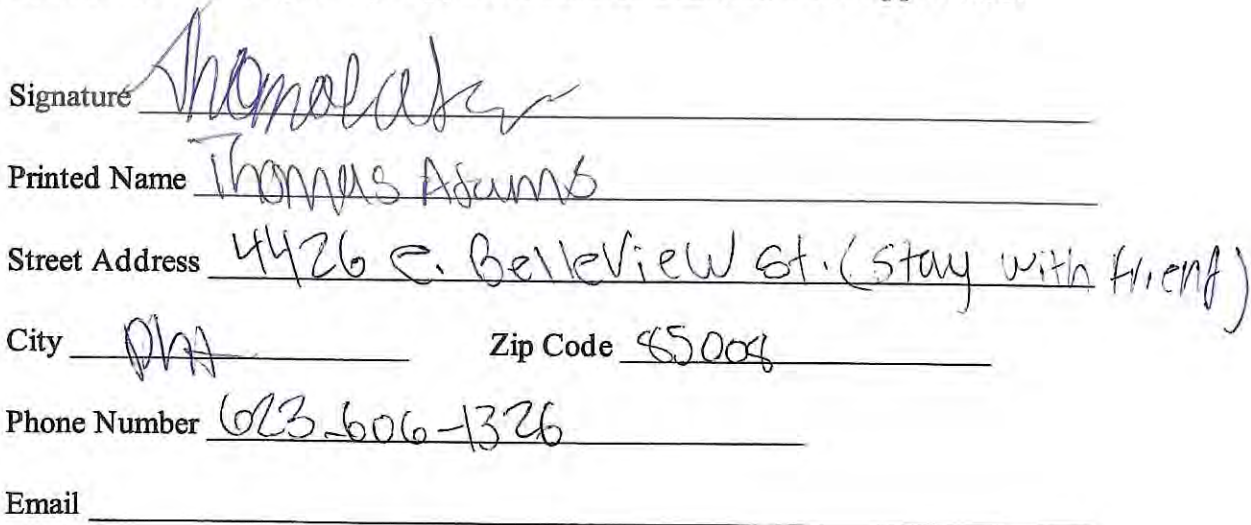 Signature
Printed Name Thomas Adams
Street Address 4426 E. Belleview St. (Stay with friend)
City Phx Zip Code 85008
Phone Number 623-606-1326
Email